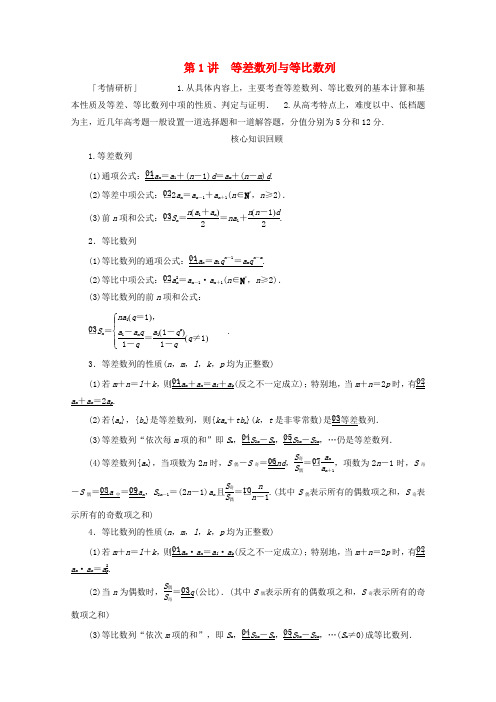 第1讲 等差数列与等比数列
「考情研析」 1.从具体内容上，主要考查等差数列、等比数列的基本计算和基
本性质及等差、等比数列中项的性质、判定与证明． 2.从高考特点上，难度以中、低档题
为主，近几年高考题一般设置一道选择题和一道解答题，分值分别为5分和12分．
核心知识回顾
1.等差数列
(1)通项公式：01 aₙ＝a₁＋(n－1)d＝aₘ＋(n－m)d．
(2)等差中项公式：02 2aₙ＝aₙ₋₁＋aₙ₊₁(n∈N*，n≥2)．
(3)前n项和公式：03 Sₙ＝n(a₁＋aₙ)/2＝na₁＋n(n－1)d/2．
2．等比数列
(1)等比数列的通项公式：01 aₙ＝a₁qⁿ⁻¹＝aₘqⁿ⁻ᵐ．
(2)等比中项公式：02 aₙ²＝aₙ₋₁·aₙ₊₁(n∈N*，n≥2)．
(3)等比数列的前n项和公式：
03 Sₙ＝{na₁(q＝1)，(a₁－aₙq)/(1－q)＝a₁(1－qⁿ)/(1－q)(q≠1)．
3．等差数列的性质(n，m，l，k，p均为正整数)
(1)若m＋n＝l＋k，则01 aₘ＋aₙ＝aₗ＋aₖ(反之不一定成立)；特别地，当m＋n＝2p时，有02
aₘ＋aₙ＝2aₚ．
(2)若{aₙ}，{bₙ}是等差数列，则{kaₙ＋tbₙ}(k，t是非零常数)是03等差数列．
(3)等差数列“依次每m项的和”即Sₘ，04 S₂ₘ－Sₘ，05 S₃ₘ－S₂ₘ，…仍是等差数列．
(4)等差数列{aₙ}，当项数为2n时，S偶－S奇＝06 nd，S奇/S偶＝07 aₙ/aₙ₊₁，项数为2n－1时，S奇
－S偶＝08 a中＝09 aₙ，S₂ₙ₋₁＝(2n－1)aₙ且S奇/S偶＝10 n/(n－1)．(其中S偶表示所有的偶数项之和，S奇表
示所有的奇数项之和)
4．等比数列的性质(n，m，l，k，p均为正整数)
(1)若m＋n＝l＋k，则01 aₘ·aₙ＝aₗ·aₖ(反之不一定成立)；特别地，当m＋n＝2p时，有02
aₘ·aₙ＝aₚ²．
(2)当n为偶数时，S偶/S奇＝03 q(公比)．(其中S偶表示所有的偶数项之和，S奇表示所有的奇
数项之和)
(3)等比数列“依次m项的和”，即Sₘ，04 S₂ₘ－Sₘ，05 S₃ₘ－S₂ₘ，…(Sₘ≠0)成等比数列．